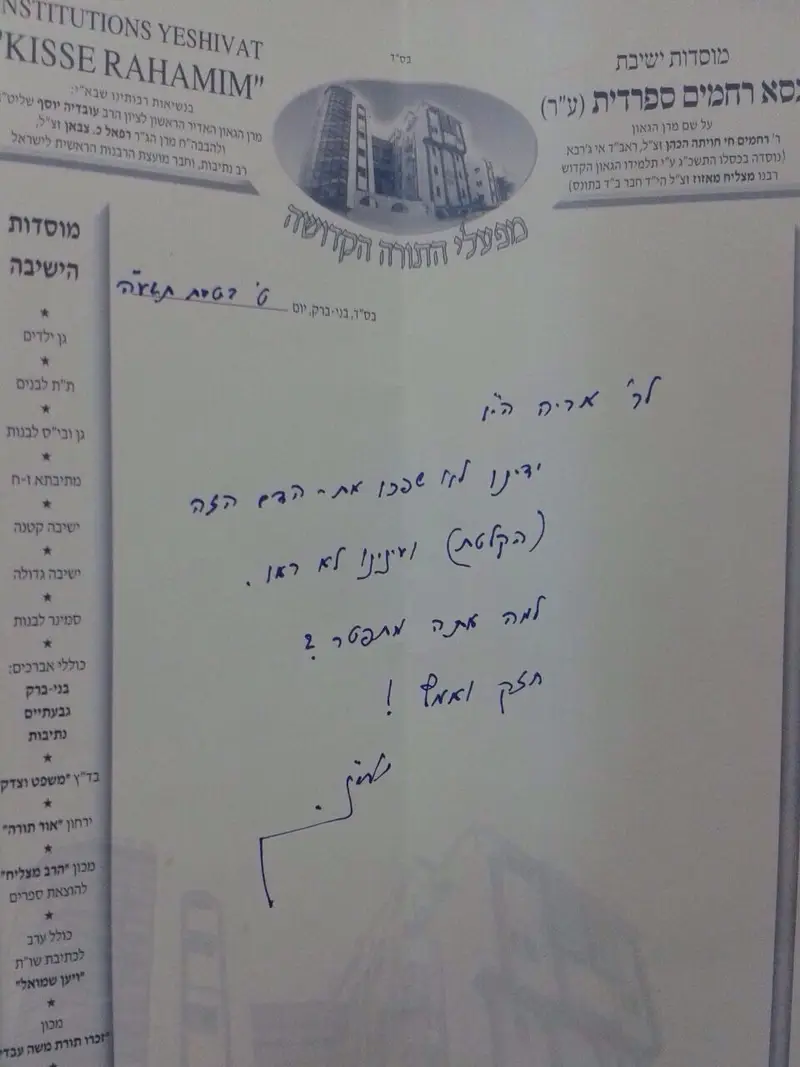 INSTITUTIONS YESHIVAT
"KISSE RAHAMIM"
בנשיאות רבותינו שבא"י:
מרן הגאון האדיר הראשון לציון הרב עובדיה יוסף שליט"א
ולהבבה"ח מרן הג"ר רפאל כ. צבאן זצ"ל,
רב נתיבות, וחבר מועצת הרבנות הראשית לישראל
בס"ד
מוסדות ישיבת
כסא רחמים ספרדית (ע"ר)
על שם מרן הגאון
ר' רחמים חי חויתה הכהן זצ"ל, ראב"ד אי ג'רבא
(נוסדה בכסלו התשכ"ג ע"י תלמידו הגאון הקדוש
רבנו מצליח מאזוז זצ"ל הי"ד חבר ב"ד בתונס)
מפעלי התורה הקדושה
בס"ד, בני-ברק, יום ט' בטבת תשע"ה
לר' אריה הי"ו
ידינו לא שפכו את הדם הזה
(הקלטת) ועינינו לא ראו.
למה אתה מתפטר?
חזק ואמץ!
מוסדות
הישיבה
★
גן ילדים
★
ת"ת לבנים
★
גן ובי"ס לבנות
★
מתיבתא ז-ח
★
ישיבה קטנה
★
ישיבה גדולה
★
סמינר לבנות
★
כוללי אברכים:
בני-ברק
גבעתיים
נתיבות
★
בד"ץ "משפט וצדק"
★
ירחון "אור תורה"
★
מכון "הרב מצליח"
להוצאת ספרים
★
כולל ערב
לכתיבת שו"ת
"ויען שמואל"
★
מכון
"זכרו תורת משה עבדי"
★